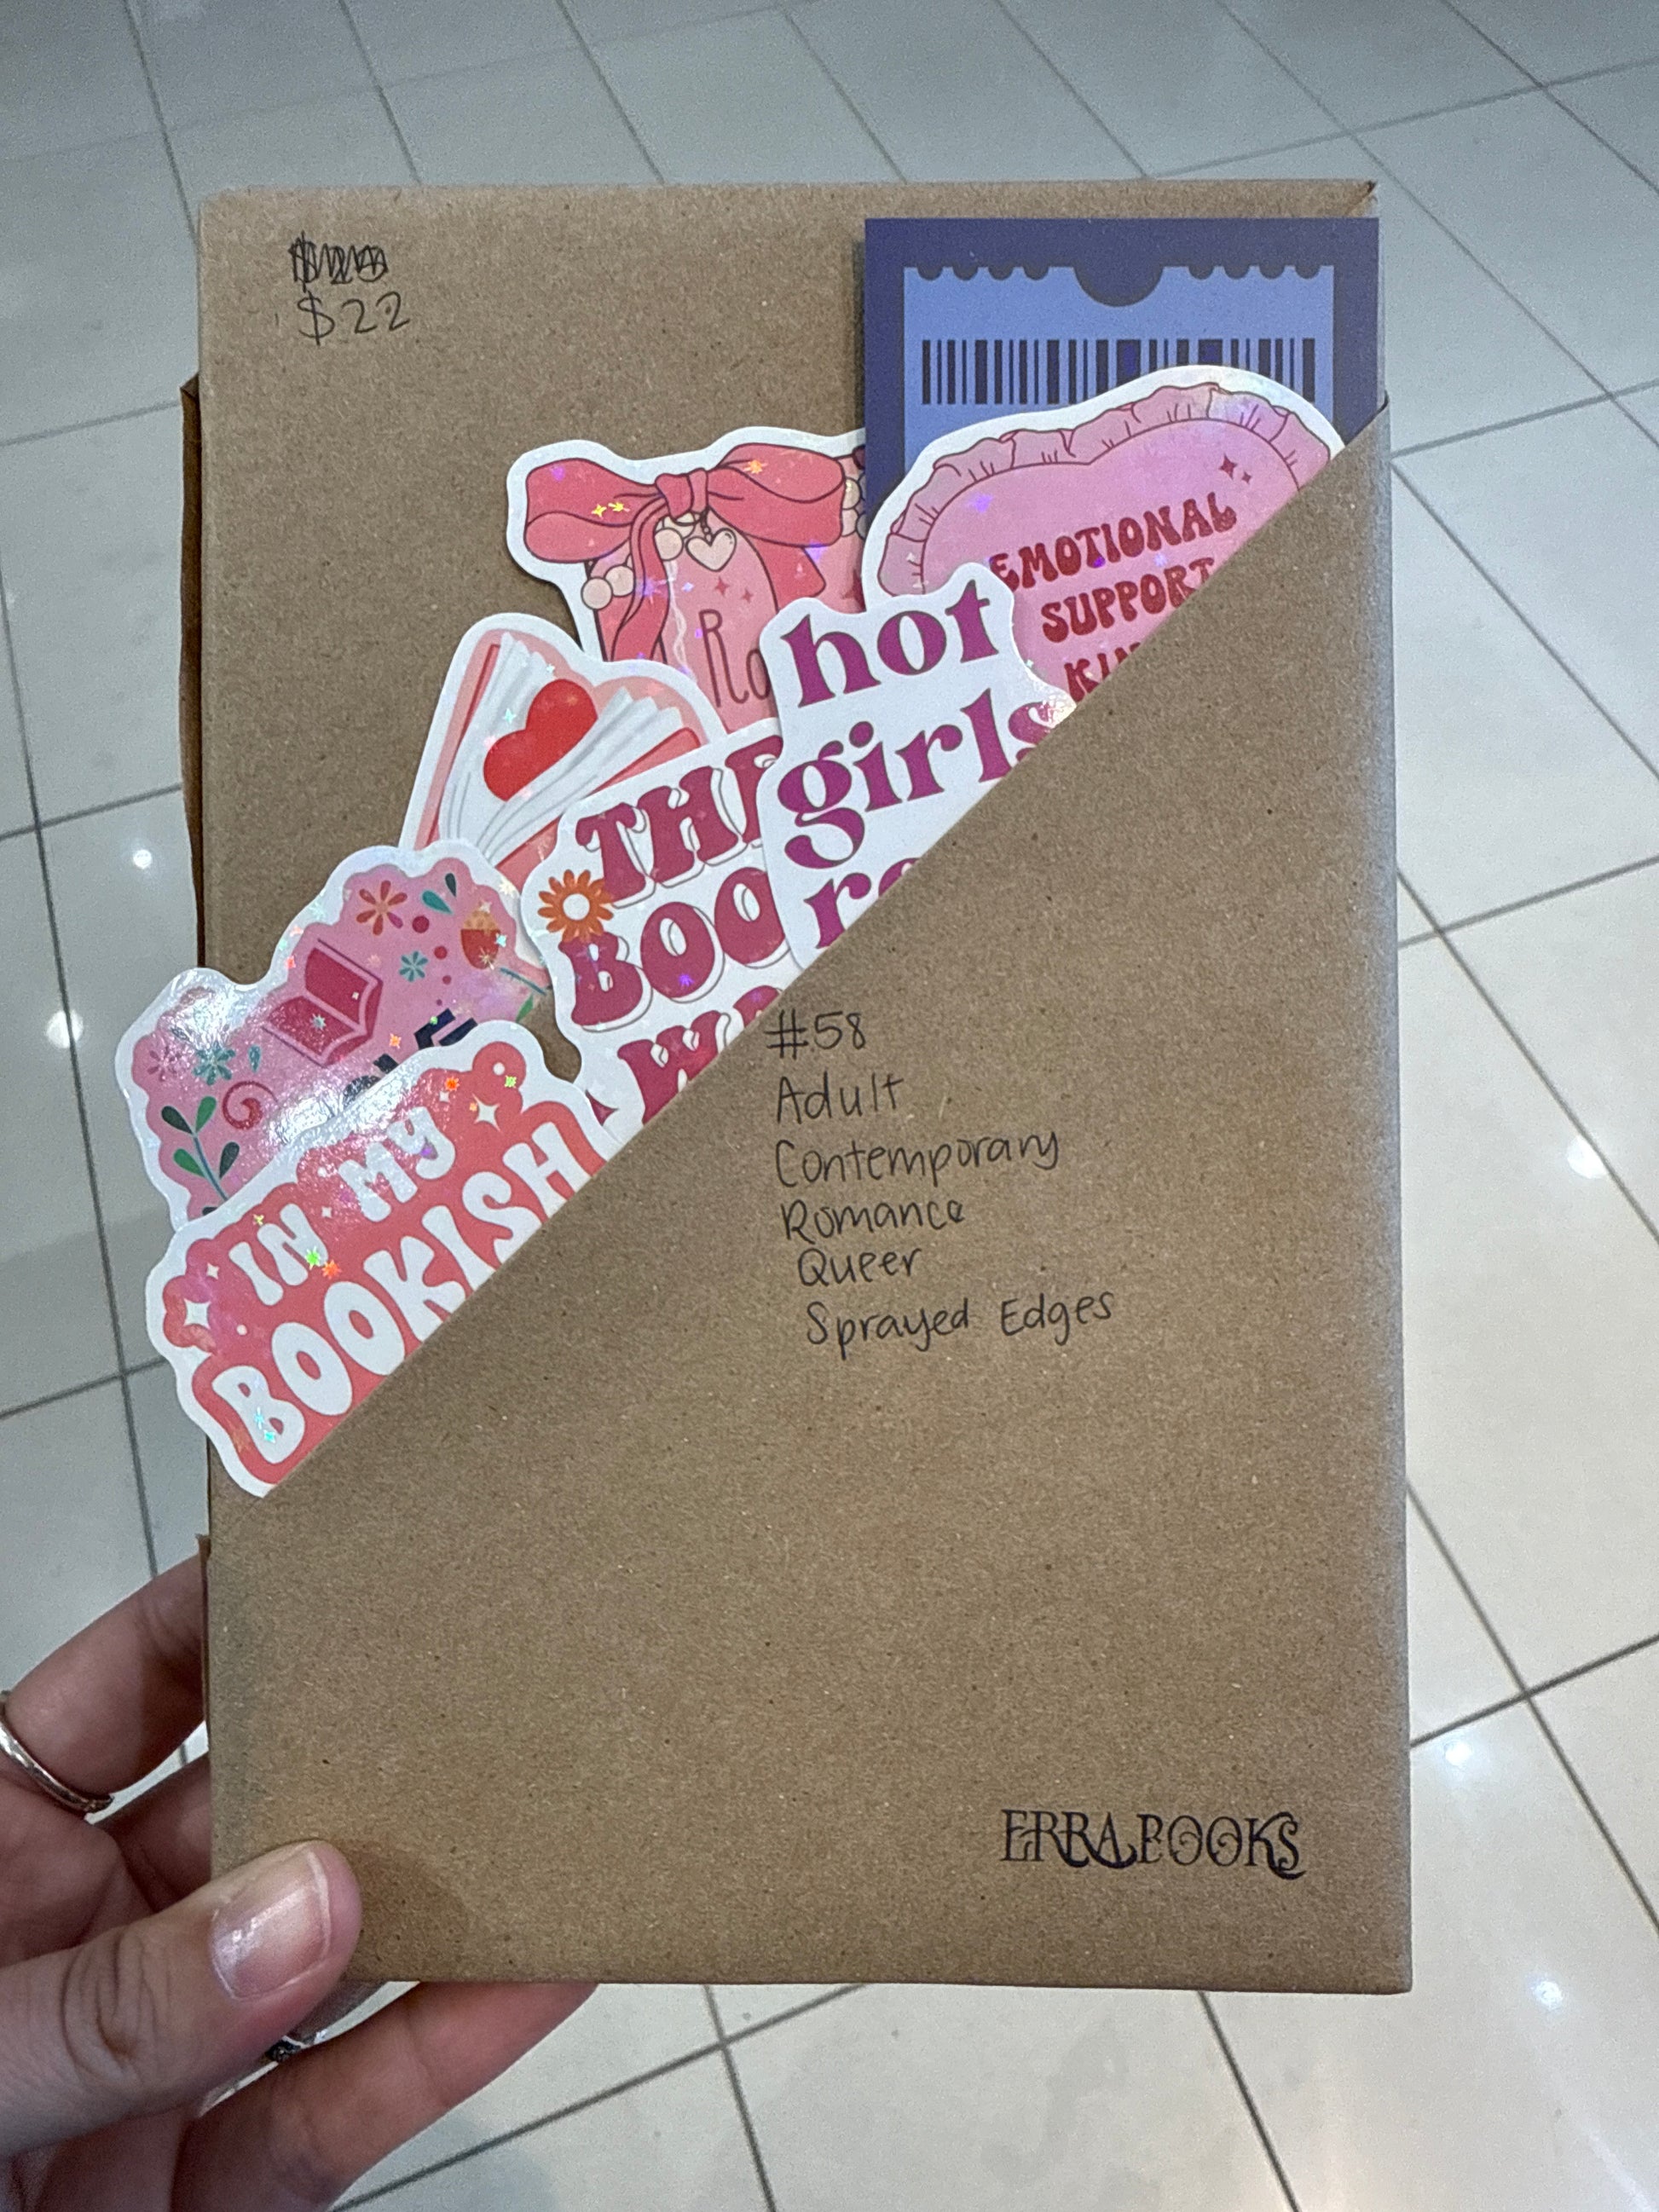 $22
EMOTIONAL
SUPPORT
hot
girls
THE
IN MY
BOOKISH
#58
Adult
Contemporary
Romance
Queer
Sprayed Edges
ERRA BOOKS